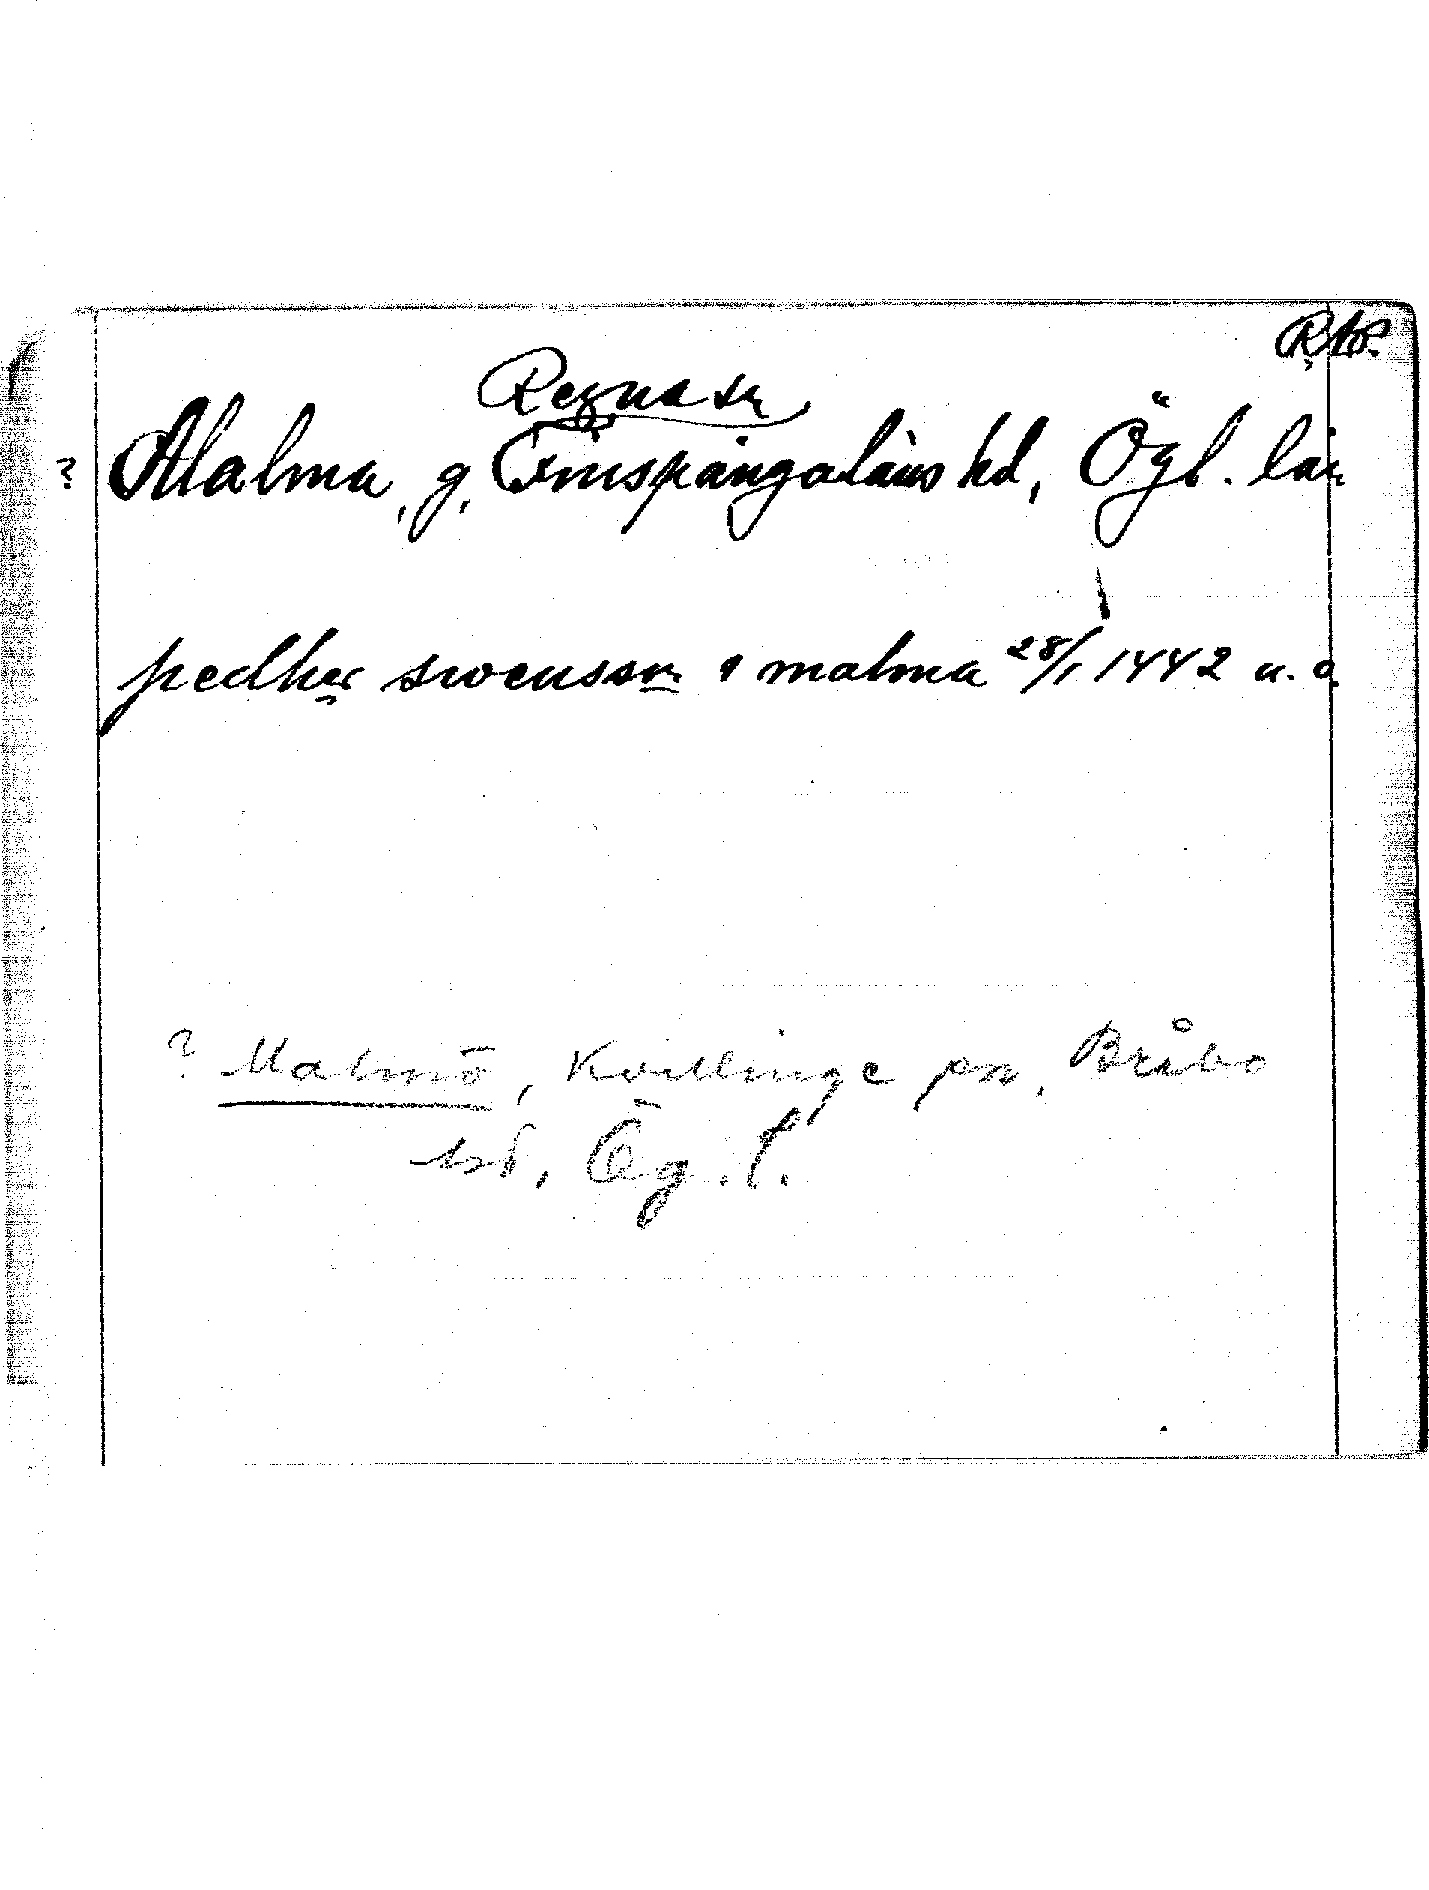 Regna sn
? Malma, g, Finspångaläns hd, Ögl. län
pedher swensson i malma 28/1 1442 u. o.
? Malmö, Kvillinge sn, Bråbo
hd, Ög. l.